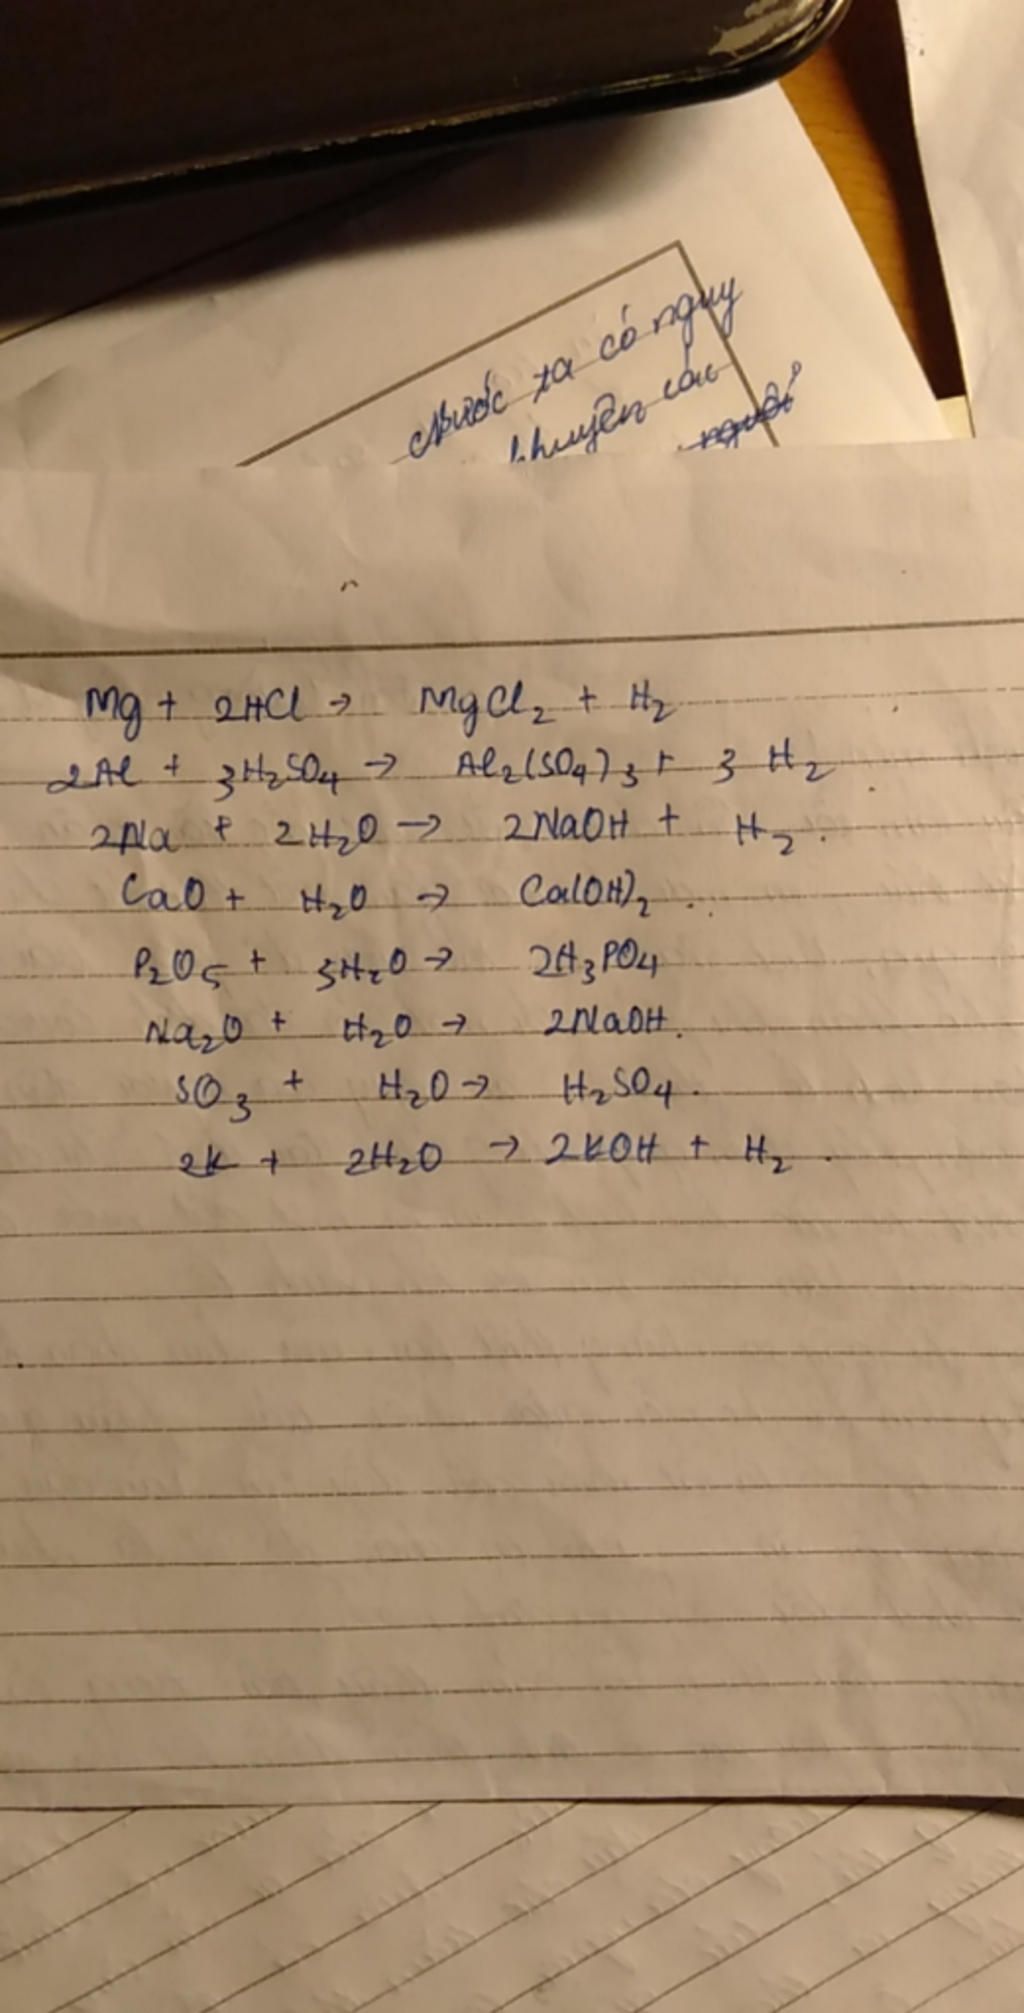 Nước ta có nguy
khuyên các
người
Mg + 2HCl → MgCl₂ + H₂
2Al + 3H₂SO₄ → Al₂(SO₄)₃ + 3 H₂
2Na + 2H₂O → 2NaOH + H₂.
CaO + H₂O → Ca(OH)₂
P₂O₅ + 3H₂O → 2H₃PO₄
Na₂O + H₂O → 2NaOH.
SO₃ + H₂O → H₂SO₄.
2K + 2H₂O → 2KOH + H₂.